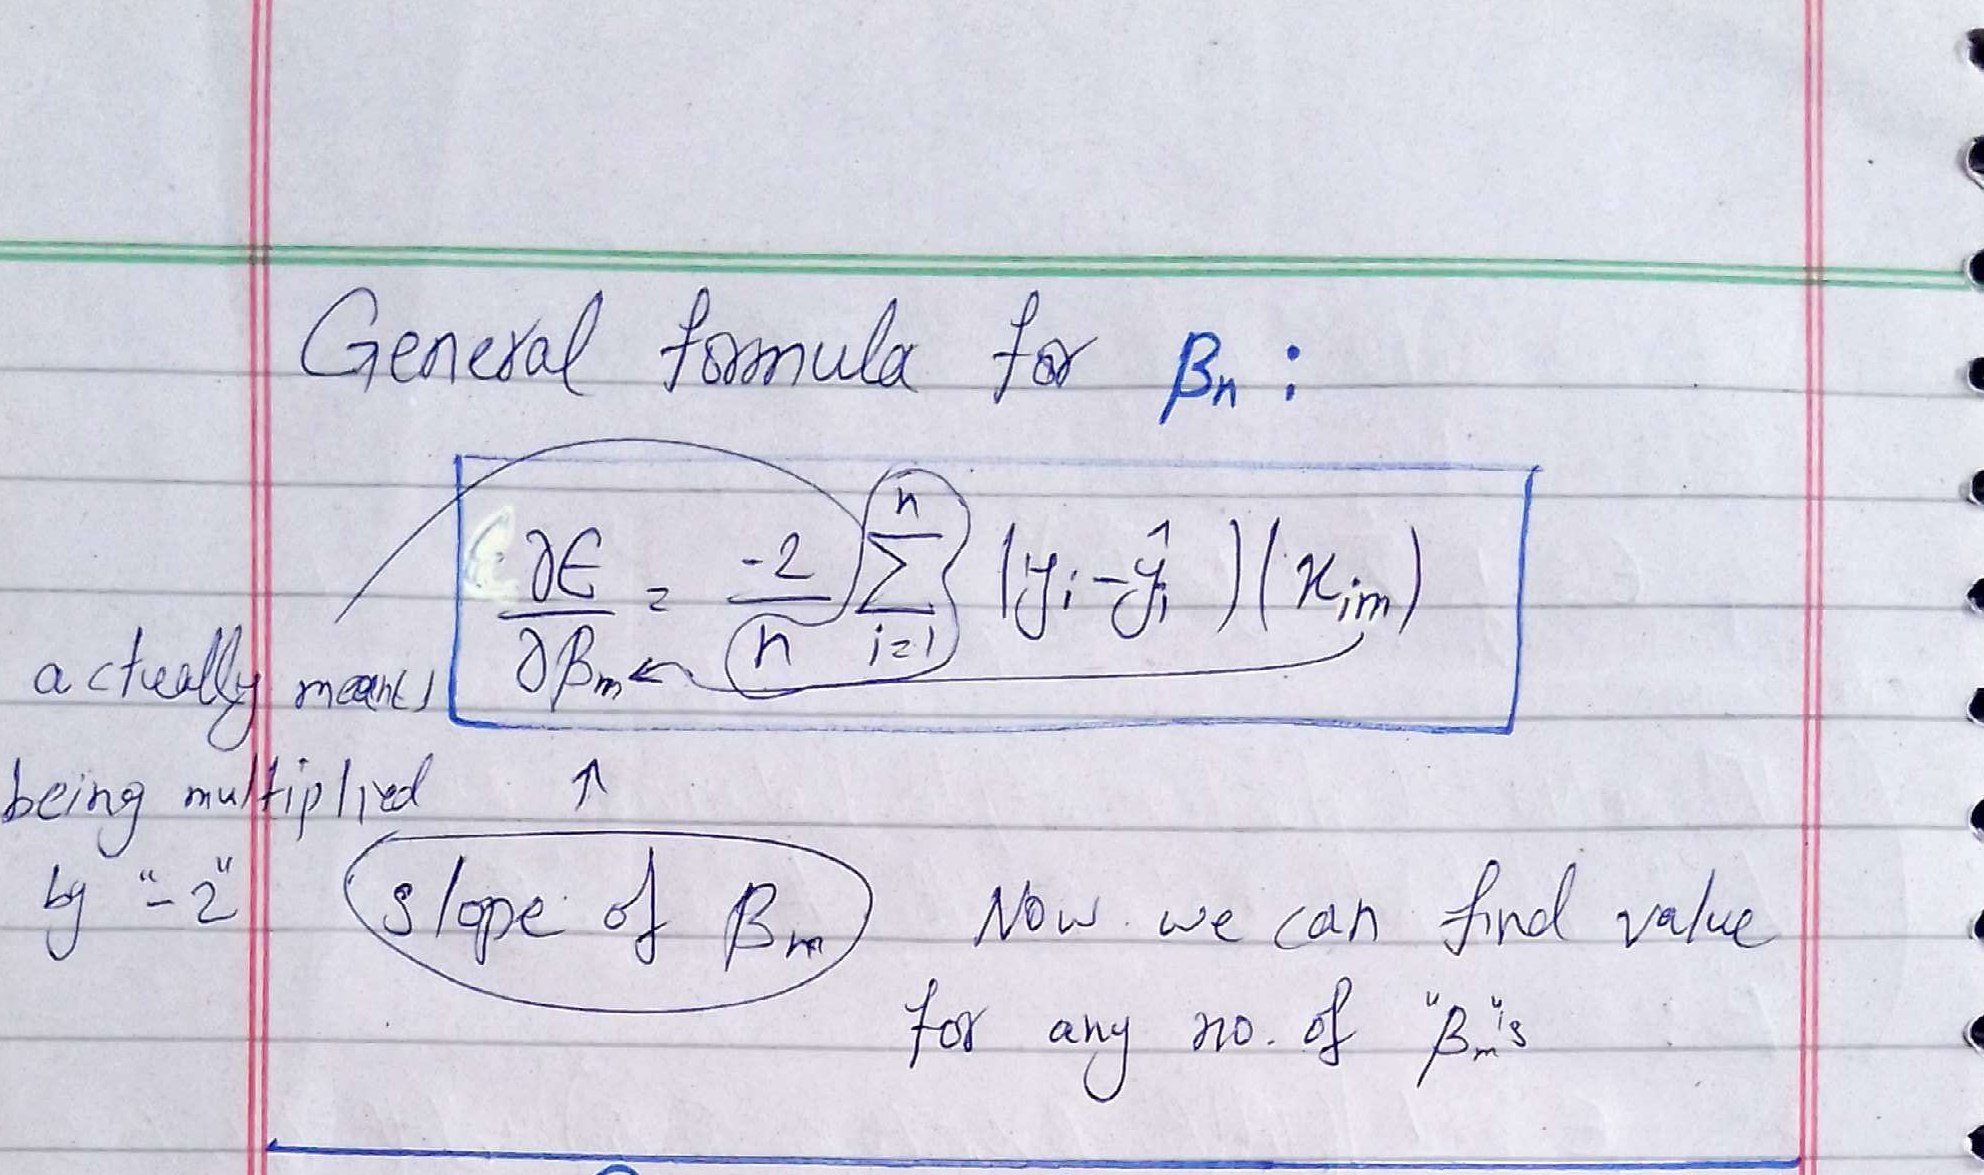 General formula for βn :
∂E/∂βm = -2/n n∑i=1 (yi - ŷi)(xim)
actually means
being multiplied
by "-2"
slope of βm
Now we can find value
for any no. of "βm"s